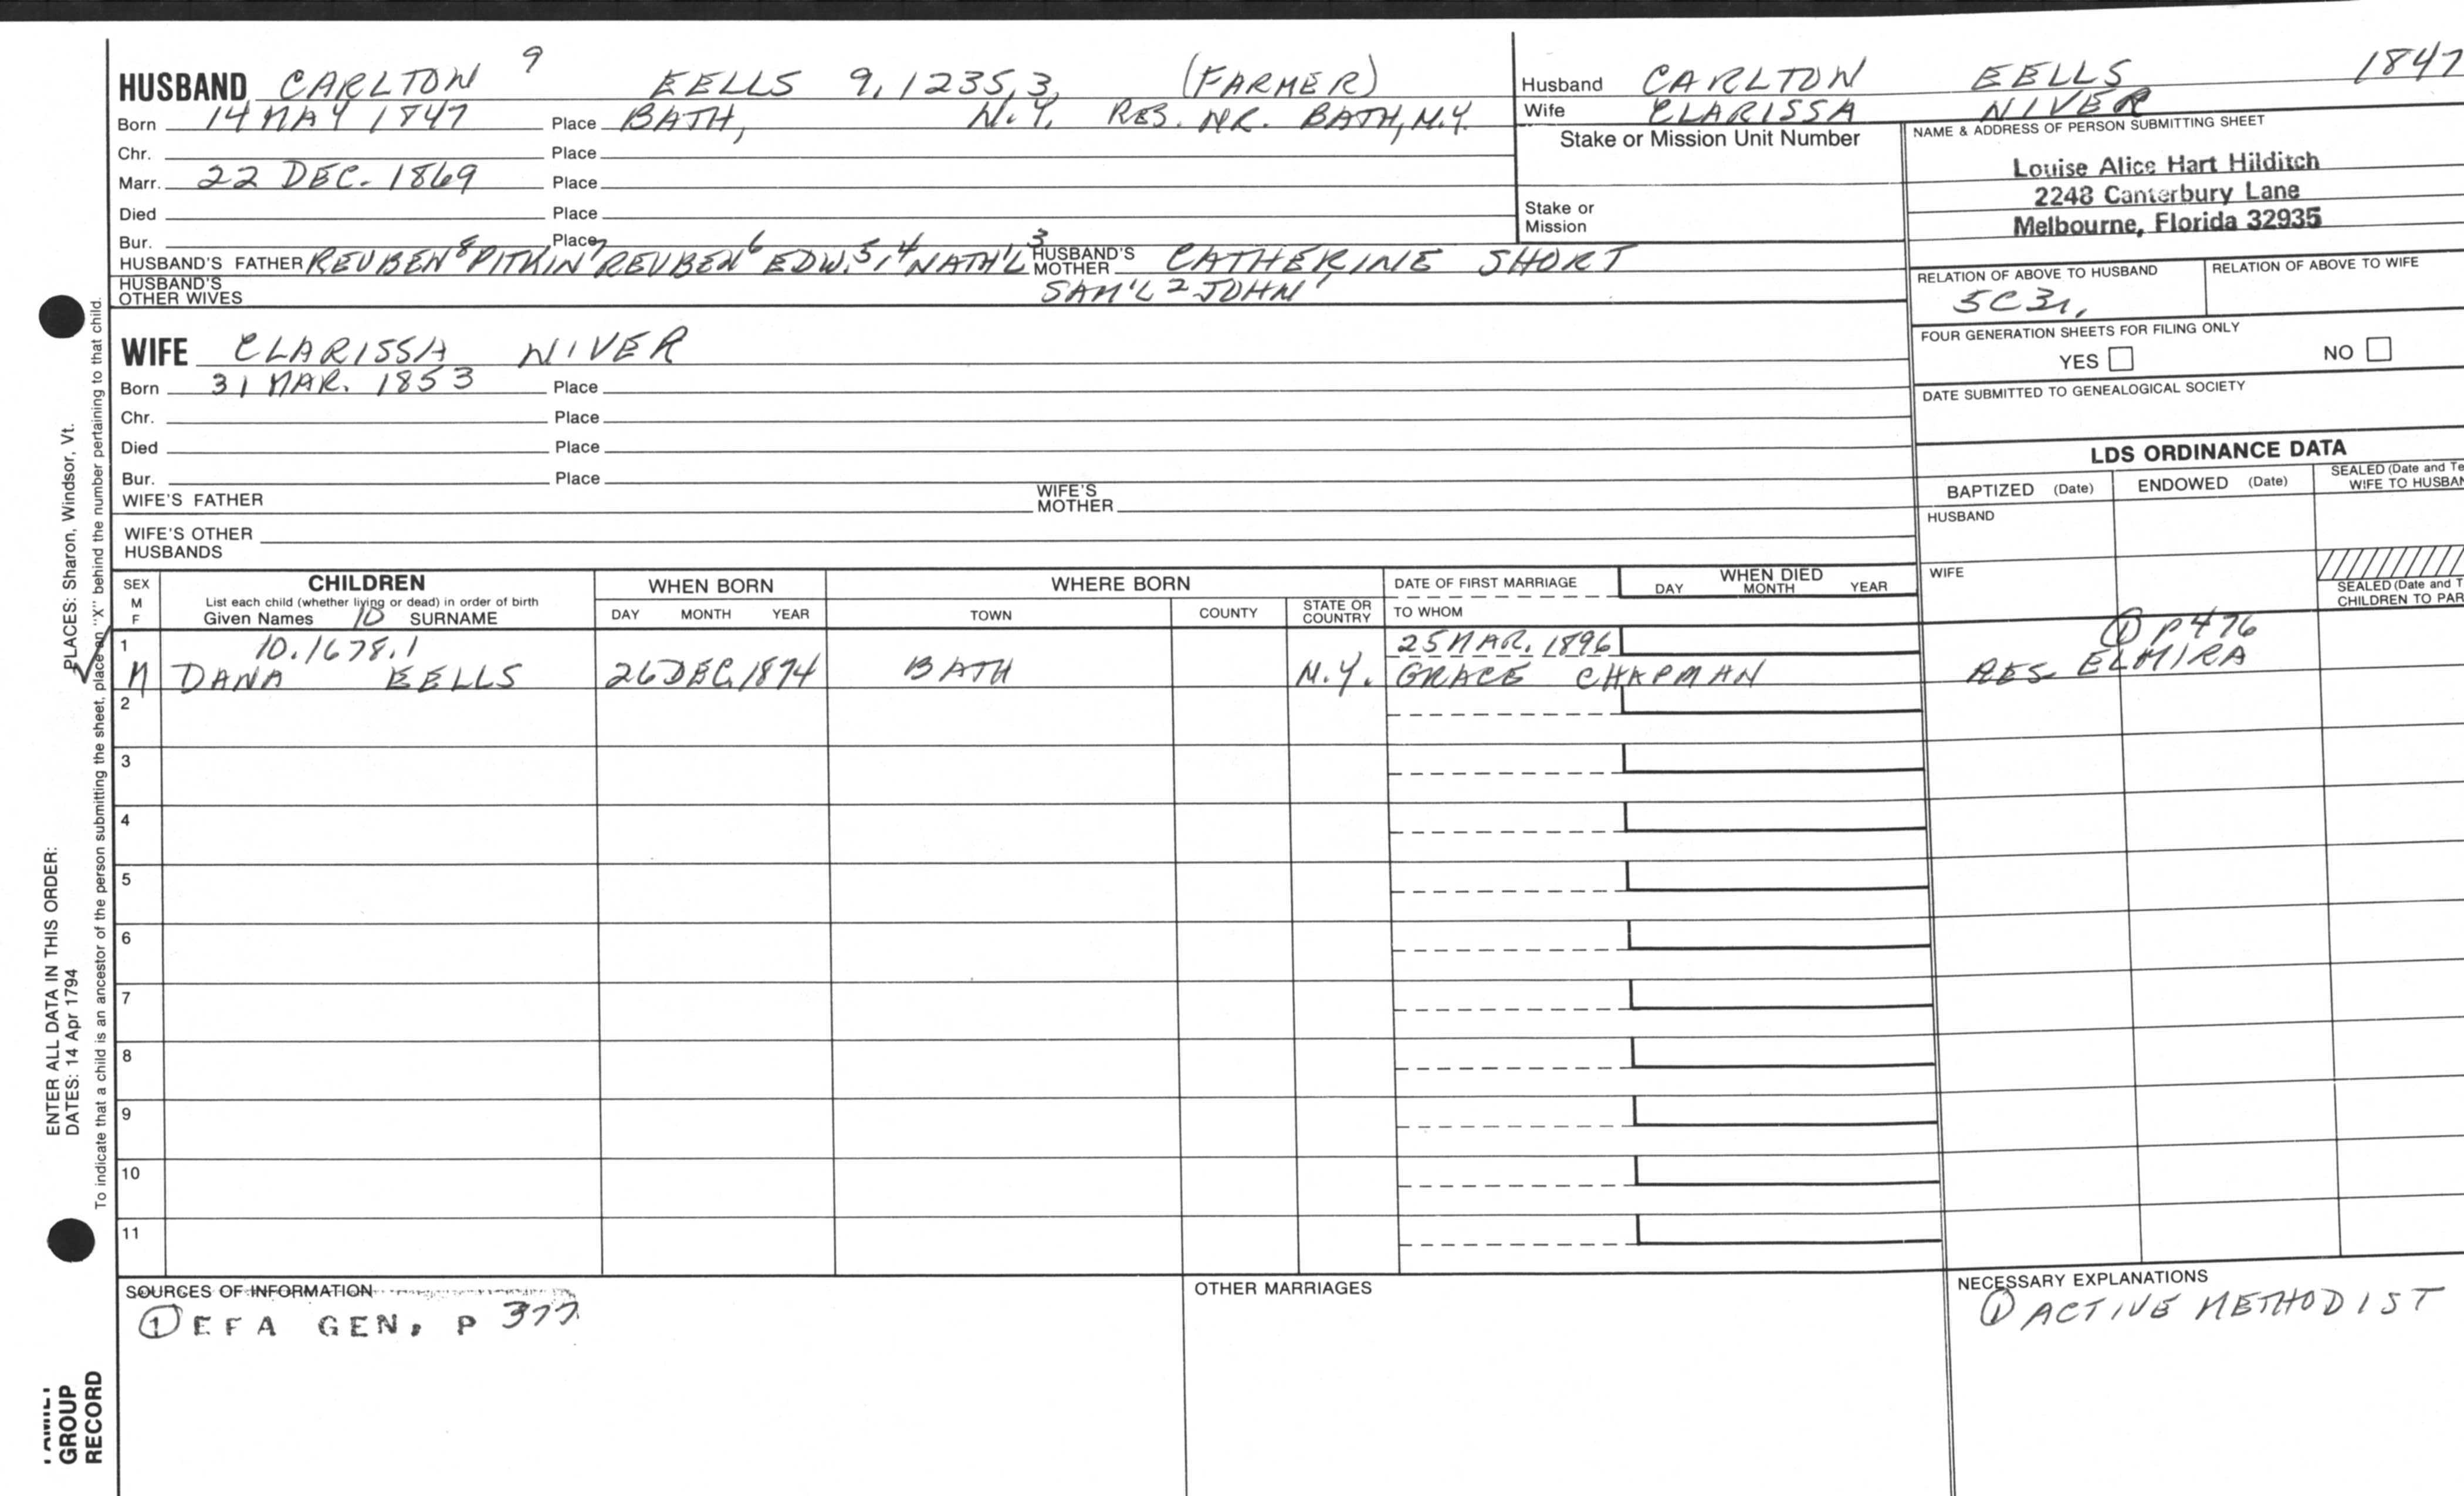 HUSBAND CARLTON 9 EELLS 9.1235.3 (FARMER)
Born 14 MAY 1847 Place BATH, N.Y. RES. NR. BATH, N.Y.
Chr. Place
Marr. 22 DEC. 1869 Place
Died Place
Bur. Place
HUSBAND'S FATHER REUBEN 8 PITKIN 7 REUBEN 6 EDW. 5,4 NATH'L 3 HUSBAND'S MOTHER CATHERINE SHORT
HUSBAND'S OTHER WIVES SAM'L 2 JOHN 1
Husband CARLTON EELLS 1847
Wife CLARISSA NIVER
Stake or Mission Unit Number
Stake or Mission
NAME & ADDRESS OF PERSON SUBMITTING SHEET
Louise Alice Hart Hilditch
2248 Canterbury Lane
Melbourne, Florida 32935
RELATION OF ABOVE TO HUSBAND RELATION OF ABOVE TO WIFE
5C3r.
FOUR GENERATION SHEETS FOR FILING ONLY
YES NO
DATE SUBMITTED TO GENEALOGICAL SOCIETY
WIFE CLARISSA NIVER
Born 31 MAR. 1853 Place
Chr. Place
Died Place
Bur. Place
WIFE'S FATHER WIFE'S MOTHER
WIFE'S OTHER HUSBANDS
LDS ORDINANCE DATA
BAPTIZED (Date) ENDOWED (Date) SEALED (Date and Te
WIFE TO HUSBAN
HUSBAND
WIFE
SEALED (Date and T
CHILDREN TO PAR
SEX M F
CHILDREN
List each child (whether living or dead) in order of birth
Given Names 10 SURNAME
WHEN BORN
DAY MONTH YEAR
WHERE BORN
TOWN COUNTY STATE OR COUNTRY
DATE OF FIRST MARRIAGE
TO WHOM
WHEN DIED
DAY MONTH YEAR
1 10.1678.1 25 MAR. 1896 ① P476
M DANA EELLS 26 DEC. 1874 BATH N.Y. GRACE CHAPMAN RES. ELMIRA
2
3
4
5
6
7
8
9
10
11
SOURCES OF INFORMATION
① EFA GEN. P 377
OTHER MARRIAGES
NECESSARY EXPLANATIONS
① ACTIVE METHODIST
ENTER ALL DATA IN THIS ORDER:
DATES: 14 Apr 1794 PLACES: Sharon, Windsor, Vt.
To indicate that a child is an ancestor of the person submitting the sheet, place an "X" behind the number pertaining to that child.
GROUP
RECORD